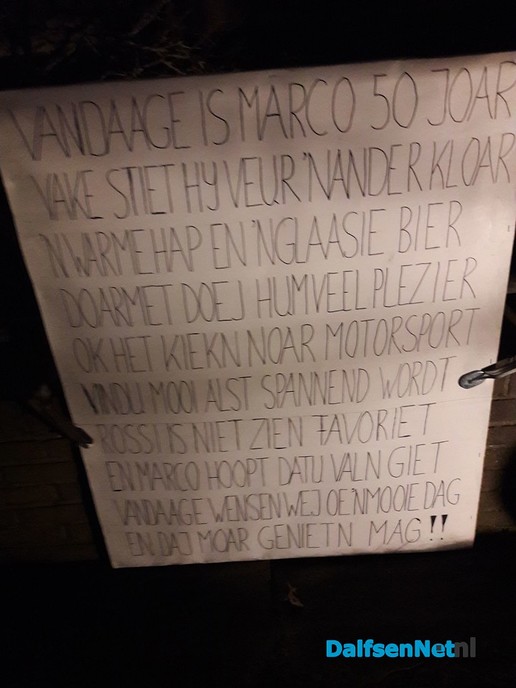 VANDAAGE IS MARCO 50 JOAR
VAKE STIET HY VEUR 'N ANDER KLOAR
'N WARME HAP EN 'N GLAASIE BIER
DOARMET DOEJ HUM VEEL PLEZIER
OK HET KIEKN NOAR MOTORSPORT
VINDU MOOI ALST SPANNEND WORDT
ROSSI IS NIET ZIEN FAVORIET
EN MARCO HOOPT DATU VALN GIET
VANDAAGE WENSEN WEJ OE 'N MOOIE DAG
EN DAJ MOAR GENIETN MAG!!
DalfsenNet.nl